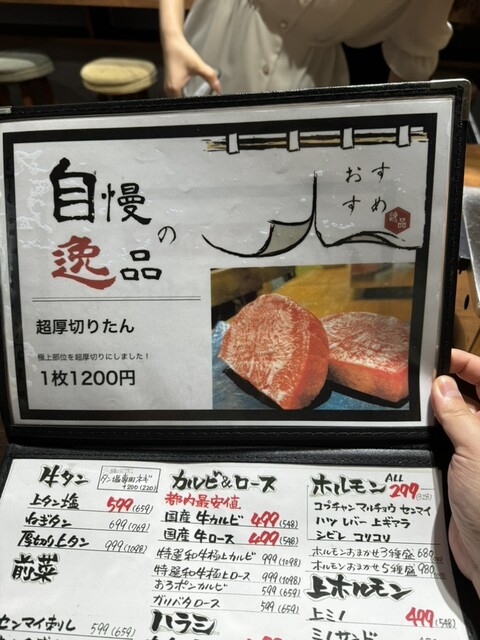 自慢の
逸品
おすすめ
超厚切りたん
極上部位を超厚切りにしました！
1枚1200円
牛タン
タン塩専用ネギ
+200(220)
上タン塩 599(659)
ねぎタン 699(769)
厚切り上タン 999(1098)
前菜
センマイ刺し 599(659)
カルビ&ロース
都内最安値
国産牛カルビ 499(548)
国産牛ロース 499(548)
特選和牛極上カルビ 999(1098)
特選和牛極上ロース 999(1098)
おろポンカルビ 599(659)
ガリバタロース 599(659)
ハラミ
ホルモン ALL 299(328)
コプチャン マルチョウ センマイ
ハツ レバー 上ギアラ
シビレ コリコリ
ホルモンおまかせ3種盛 680
ホルモンおまかせ5種盛 980
上ホルモン
上ミノ 499(548)
ミノサンド